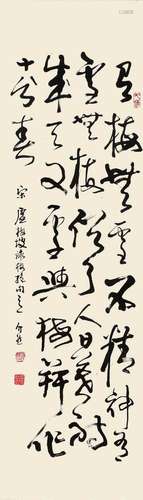 有梅無雪不精神有
雪無梅俗了人日暮詩
成天又雪與梅并作
十分春
宋盧梅坡